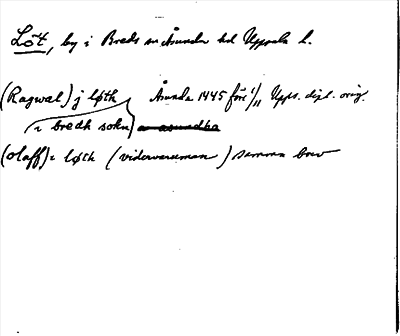 Löt, by i Breds sn Åsunda hd Uppsala l.
(Ragwal) j løth Åsunda 1445 före 1/11 Upps. dipl. orig.
i bredh sokn
(olaff) i løth (vidervaruman) samma brev